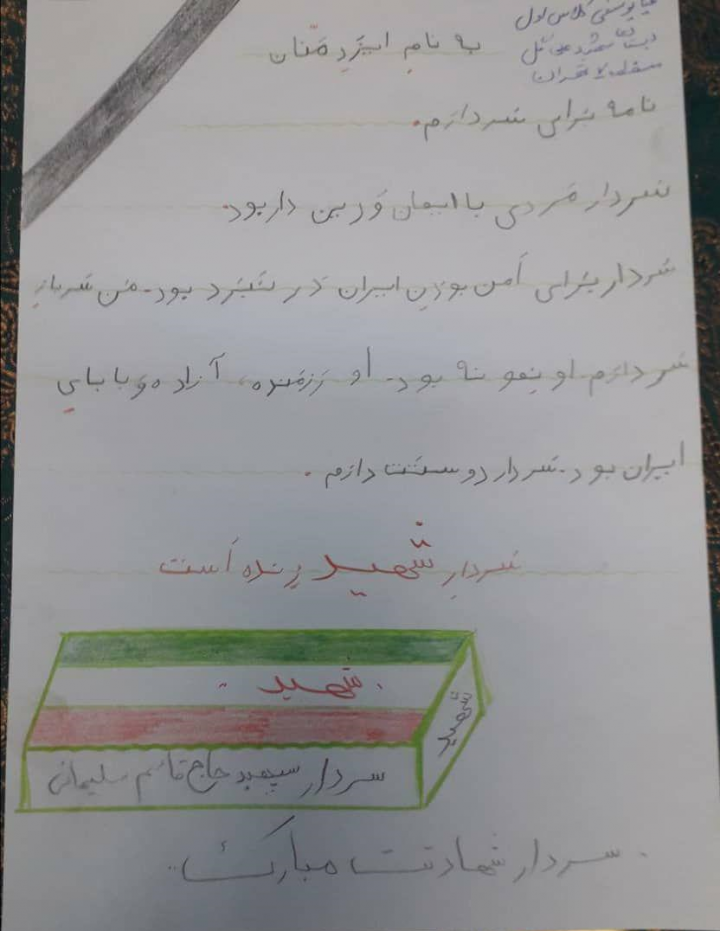 کلاس اول
دبستان شهید
تهران
به نامِ ایزدِ مَنّان
نامه بَرای سَردارَم.
سَردار مَردی با ایمان وَ دین دار بود.
سَردار بَرای اَمن بودَنِ ایران دَر نَبَرد بود. مَن سَربازِ
سَردارَم. او نِمو نه بود. او رَزمَنده، آزاده وَ بابایِ
ایران بود. سَردار دوستَت دارَم.
سَردارِ شَهید زِنده اَست
شهید
شهید
سردار سپهبد حاج قاسم سلیمانی
سردار شهادتت مبارک.